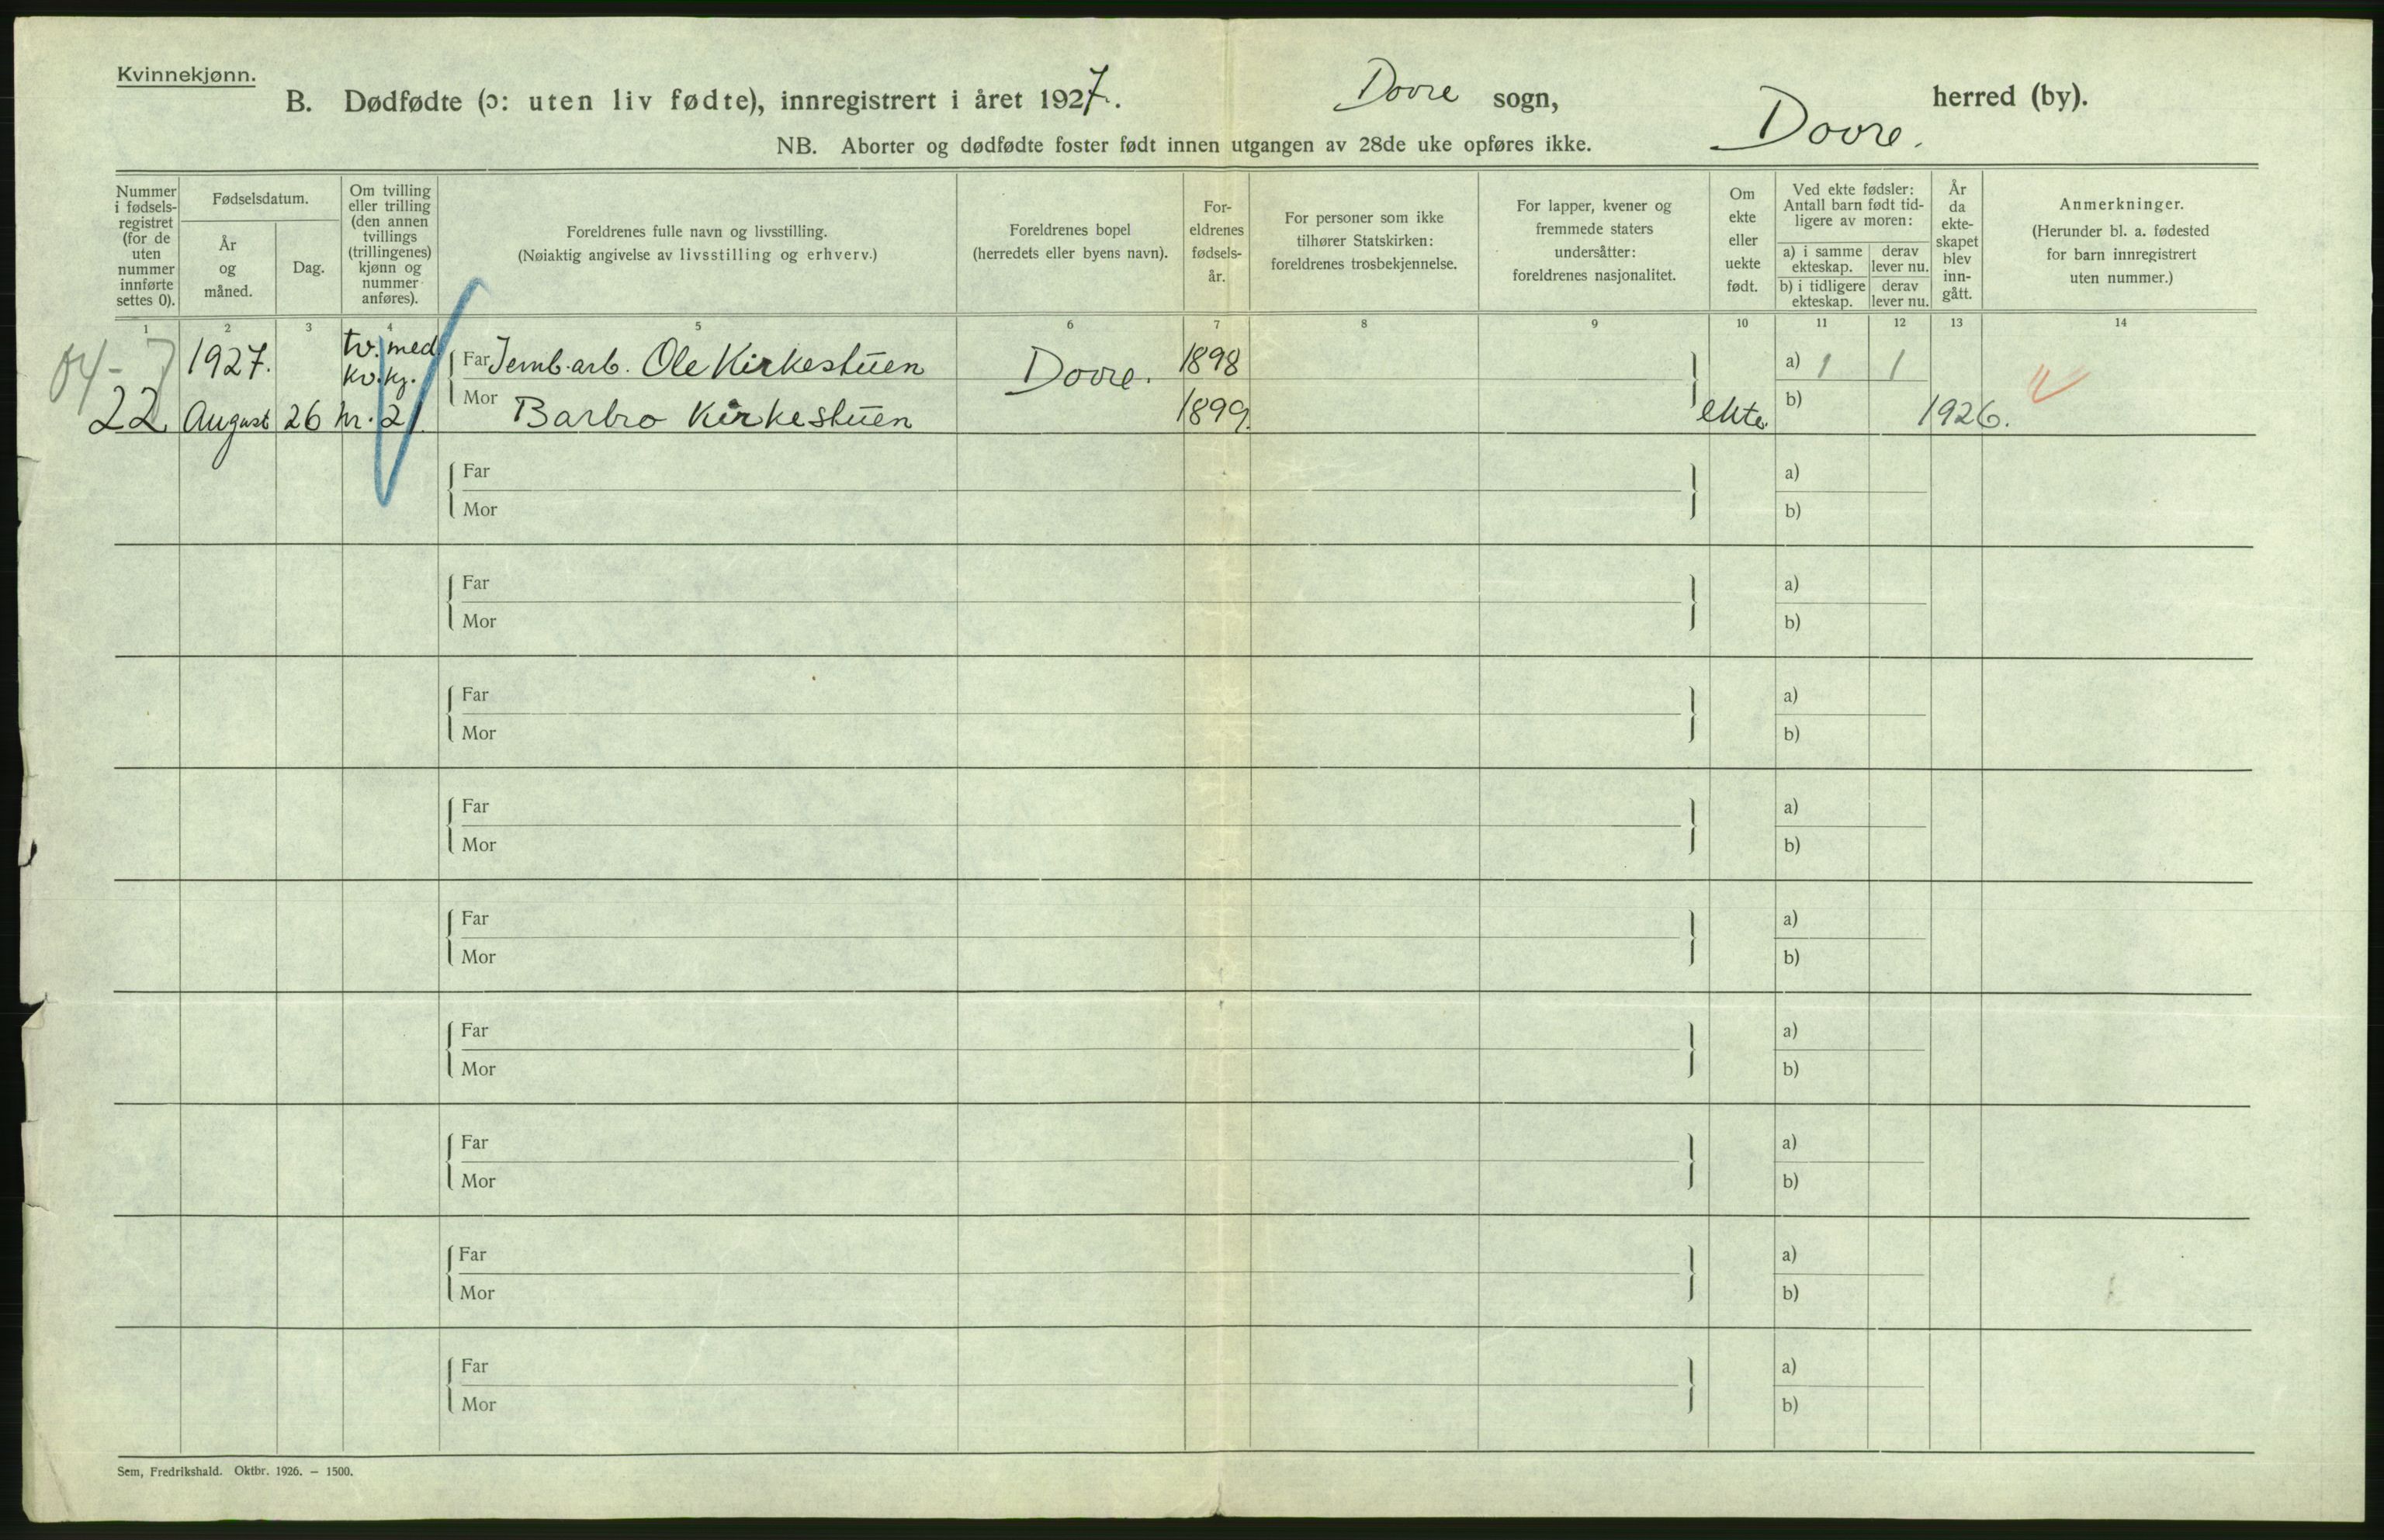 Kvinnekjønn.
B. Dødfødte (ɔ: uten liv fødte), innregistrert i året 1927. Dovre sogn, Dovre. herred (by).
NB. Aborter og dødfødte foster født innen utgangen av 28de uke opføres ikke.
Nummer i fødsels-registret (for de uten nummer innførte settes 0).
Fødselsdatum.
År og måned.
Dag.
Om tvilling eller trilling (den annen tvillings (trillingenes) kjønn og nummer anføres).
Foreldrenes fulle navn og livsstilling.
(Nøiaktig angivelse av livsstilling og erhverv.)
Foreldrenes bopel
(herredets eller byens navn).
For-eldrenes fødsels-år.
For personer som ikke tilhører Statskirken: foreldrenes trosbekjennelse.
For lapper, kvener og fremmede staters undersåtter: foreldrenes nasjonalitet.
Om ekte eller uekte født.
Ved ekte fødsler: Antall barn født tid-ligere av moren:
a) i samme ekteskap.
derav lever nu.
b) i tidligere ekteskap.
derav lever nu.
År da ekte-skapet blev inn-gått.
Anmerkninger.
(Herunder bl. a. fødested for barn innregistrert uten nummer.)
1 2 3 4 5 6 7 8 9 10 11 12 13 14
04-7
1927. tv. med Far Jernb.arb. Ole Kirkestuen Dovre. 1898 a) 1 1
kv.kj.
22 August 26 nr. 21. Mor Barbro Kirkestuen 1899. ekte. b) 1926.
Far a)
Mor b)
Far a)
Mor b)
Far a)
Mor b)
Far a)
Mor b)
Far a)
Mor b)
Far a)
Mor b)
Far a)
Mor b)
Far a)
Mor b)
Far a)
Mor b)
Sem, Fredrikshald. Oktbr. 1926. — 1500.